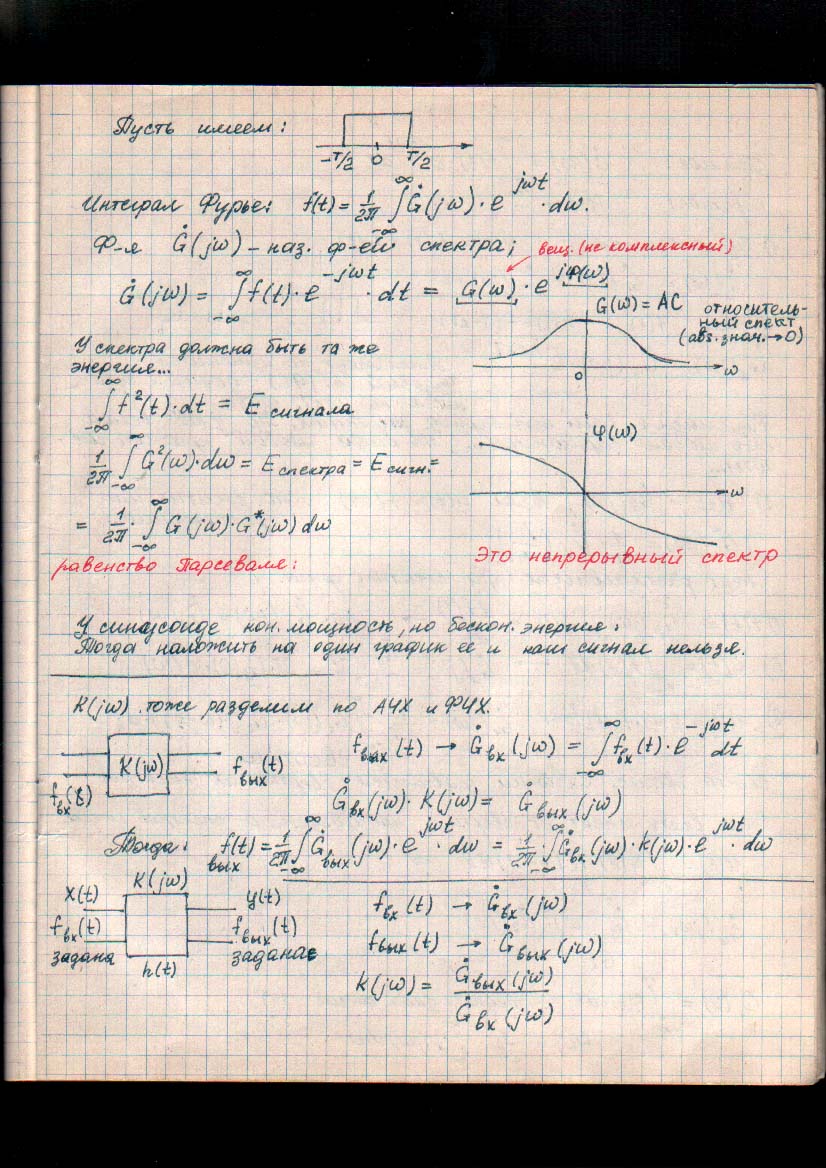 Пусть имеем:
-T/2 0 T/2
Интеграл Фурье: f(t) = 1/2π ∫_{-∞}^{∞} Ġ(jω)·e^{jωt}·dω.
Ф-я Ġ(jω) – наз. ф-ей спектра;
вещ. (не комплексный)
Ġ(jω) = ∫_{-∞}^{∞} f(t)·e^{-jωt}·dt = G(ω)·e^{jφ(ω)}
G(ω) = АС
относитель-
ный спект
(abs. знач. → 0)
0 ω
У спектра должна быть та же
энергия...
∫_{-∞}^{∞} f²(t)·dt = E сигнала
φ(ω)
ω
1/2π ∫_{-∞}^{∞} G²(ω)·dω = E спектра = E сигн. =
= 1/2π · ∫_{-∞}^{∞} G(jω)·G*(jω) dω
равенство Парсеваля:
Это непрерывный спектр
У синусоиде кон. мощность, но бескон. энергия.
Тогда наложить на один график ее и наш сигнал нельзя.
K(jω) тоже разделим по АЧХ и ФЧХ.
f вх (t)
K(jω)
f вых (t)
f вых (t) → Ġ вх (jω) = ∫_{-∞}^{∞} f вх (t)·e^{-jωt} dt
Ġ вх (jω)·K(jω) = Ġ вых (jω)
Тогда: f(t) вых = 1/2π ∫_{-∞}^{∞} Ġ вых (jω)·e^{jωt}·dω = 1/2π · ∫_{-∞}^{∞} Ġ вх (jω)·K(jω)·e^{jωt}·dω
X(t) K(jω) y(t)
f вх (t) f вых (t)
задана задана
h(t)
f вх (t) → Ġ вх (jω)
f вых (t) → Ġ вых (jω)
K(jω) = Ġ вых (jω) / Ġ вх (jω)